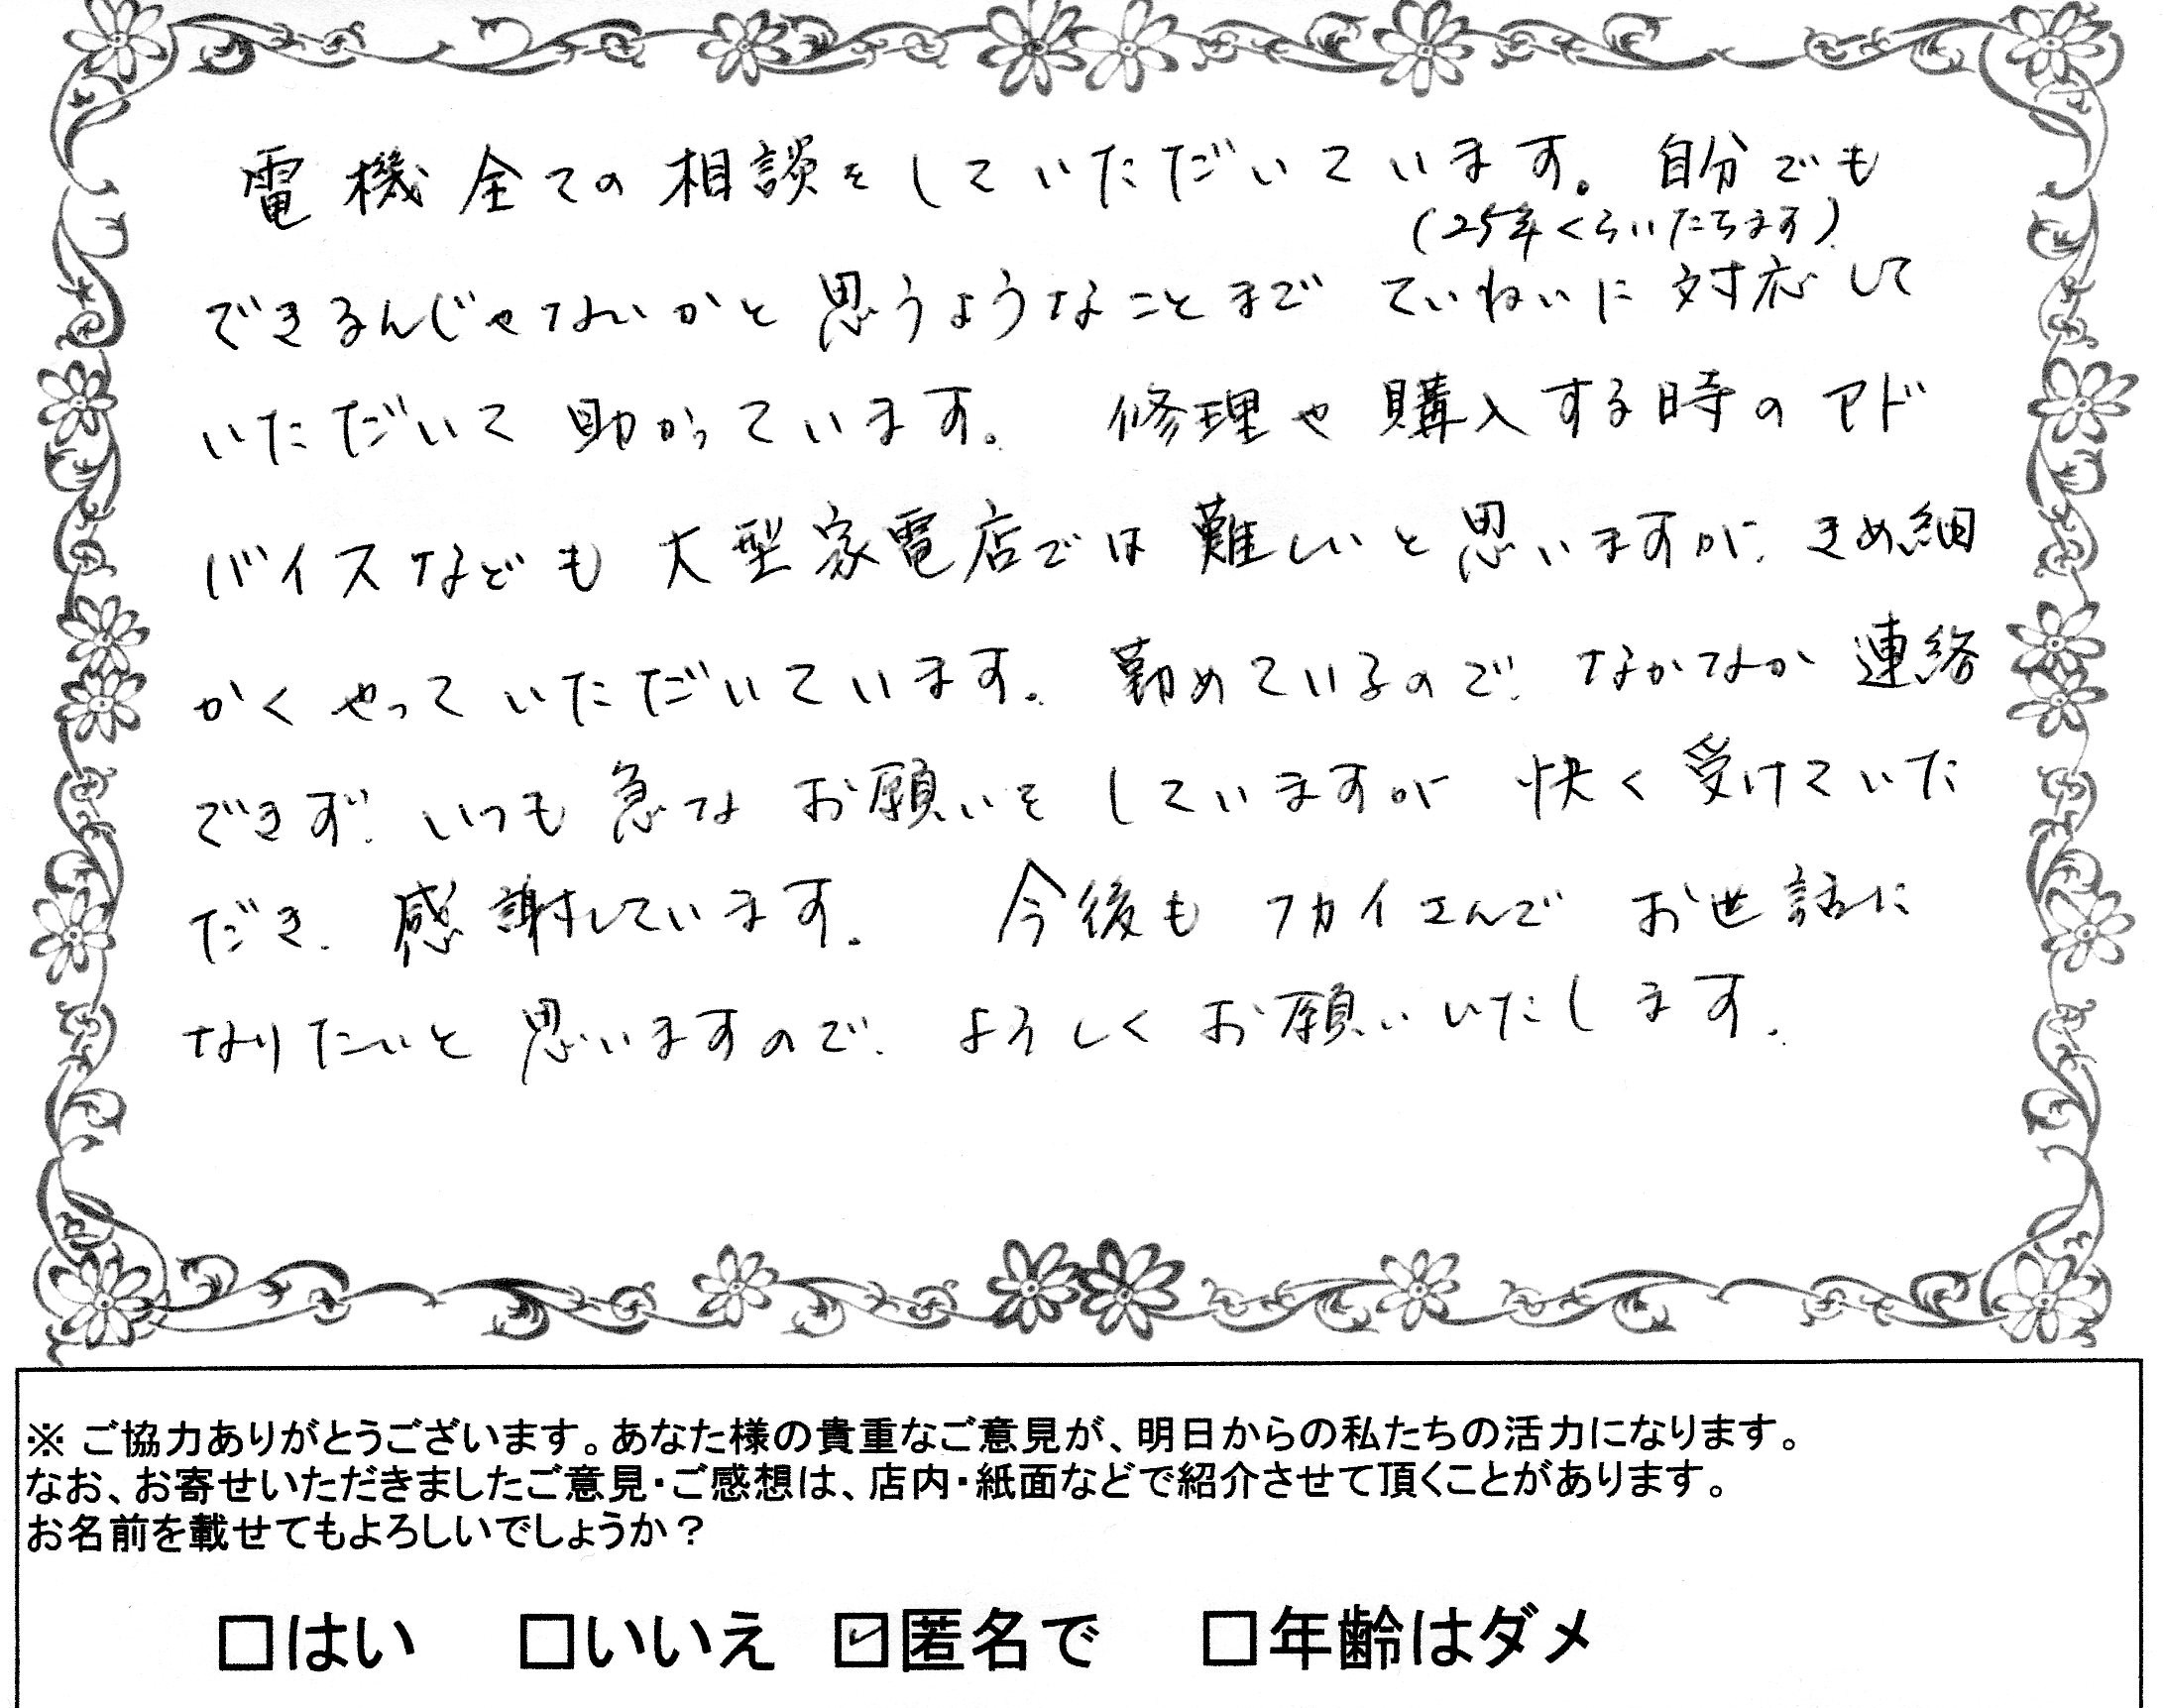 電機全ての相談をしていただいています。自分でも
(25年くらいたちます)
できるんじゃないかと思うようなことまで ていねいに対応して
いただいて助かっています。 修理や購入する時のアド
バイスなども大型家電店では難しいと思いますが、きめ細
かくやっていただいています。勤めているので、なかなか連絡
できず、いつも急なお願いをしていますが 快く受けていた
だき、感謝しています。 今後もフカイさんでお世話に
なりたいと思いますので、よろしくお願いいたします。
※ ご協力ありがとうございます。あなた様の貴重なご意見が、明日からの私たちの活力になります。
なお、お寄せいただきましたご意見・ご感想は、店内・紙面などで紹介させて頂くことがあります。
お名前を載せてもよろしいでしょうか？
□はい □いいえ ☑匿名で □年齢はダメ